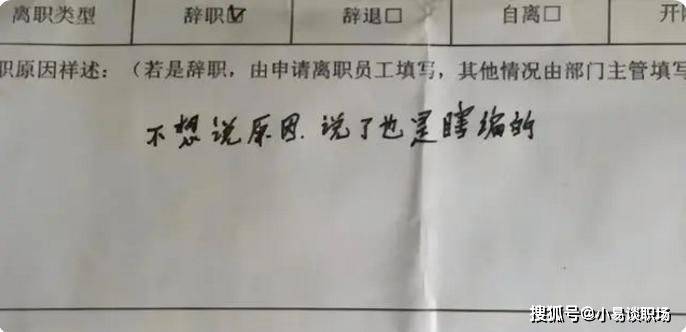 离职类型 辞职☑ 辞退□ 自离□ 开
职原因样述：（若是辞职，由申请离职员工填写，其他情况由部门主管填写
不想说原因.说了也是瞎编的
搜狐号@小易谈职场